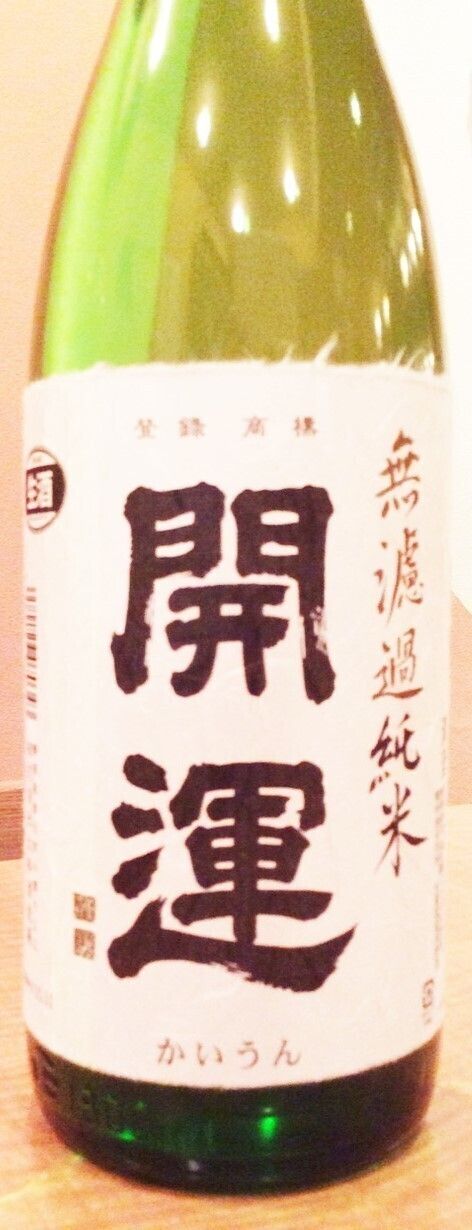 登録 商標
無濾過純米
開運
かいうん
生酒